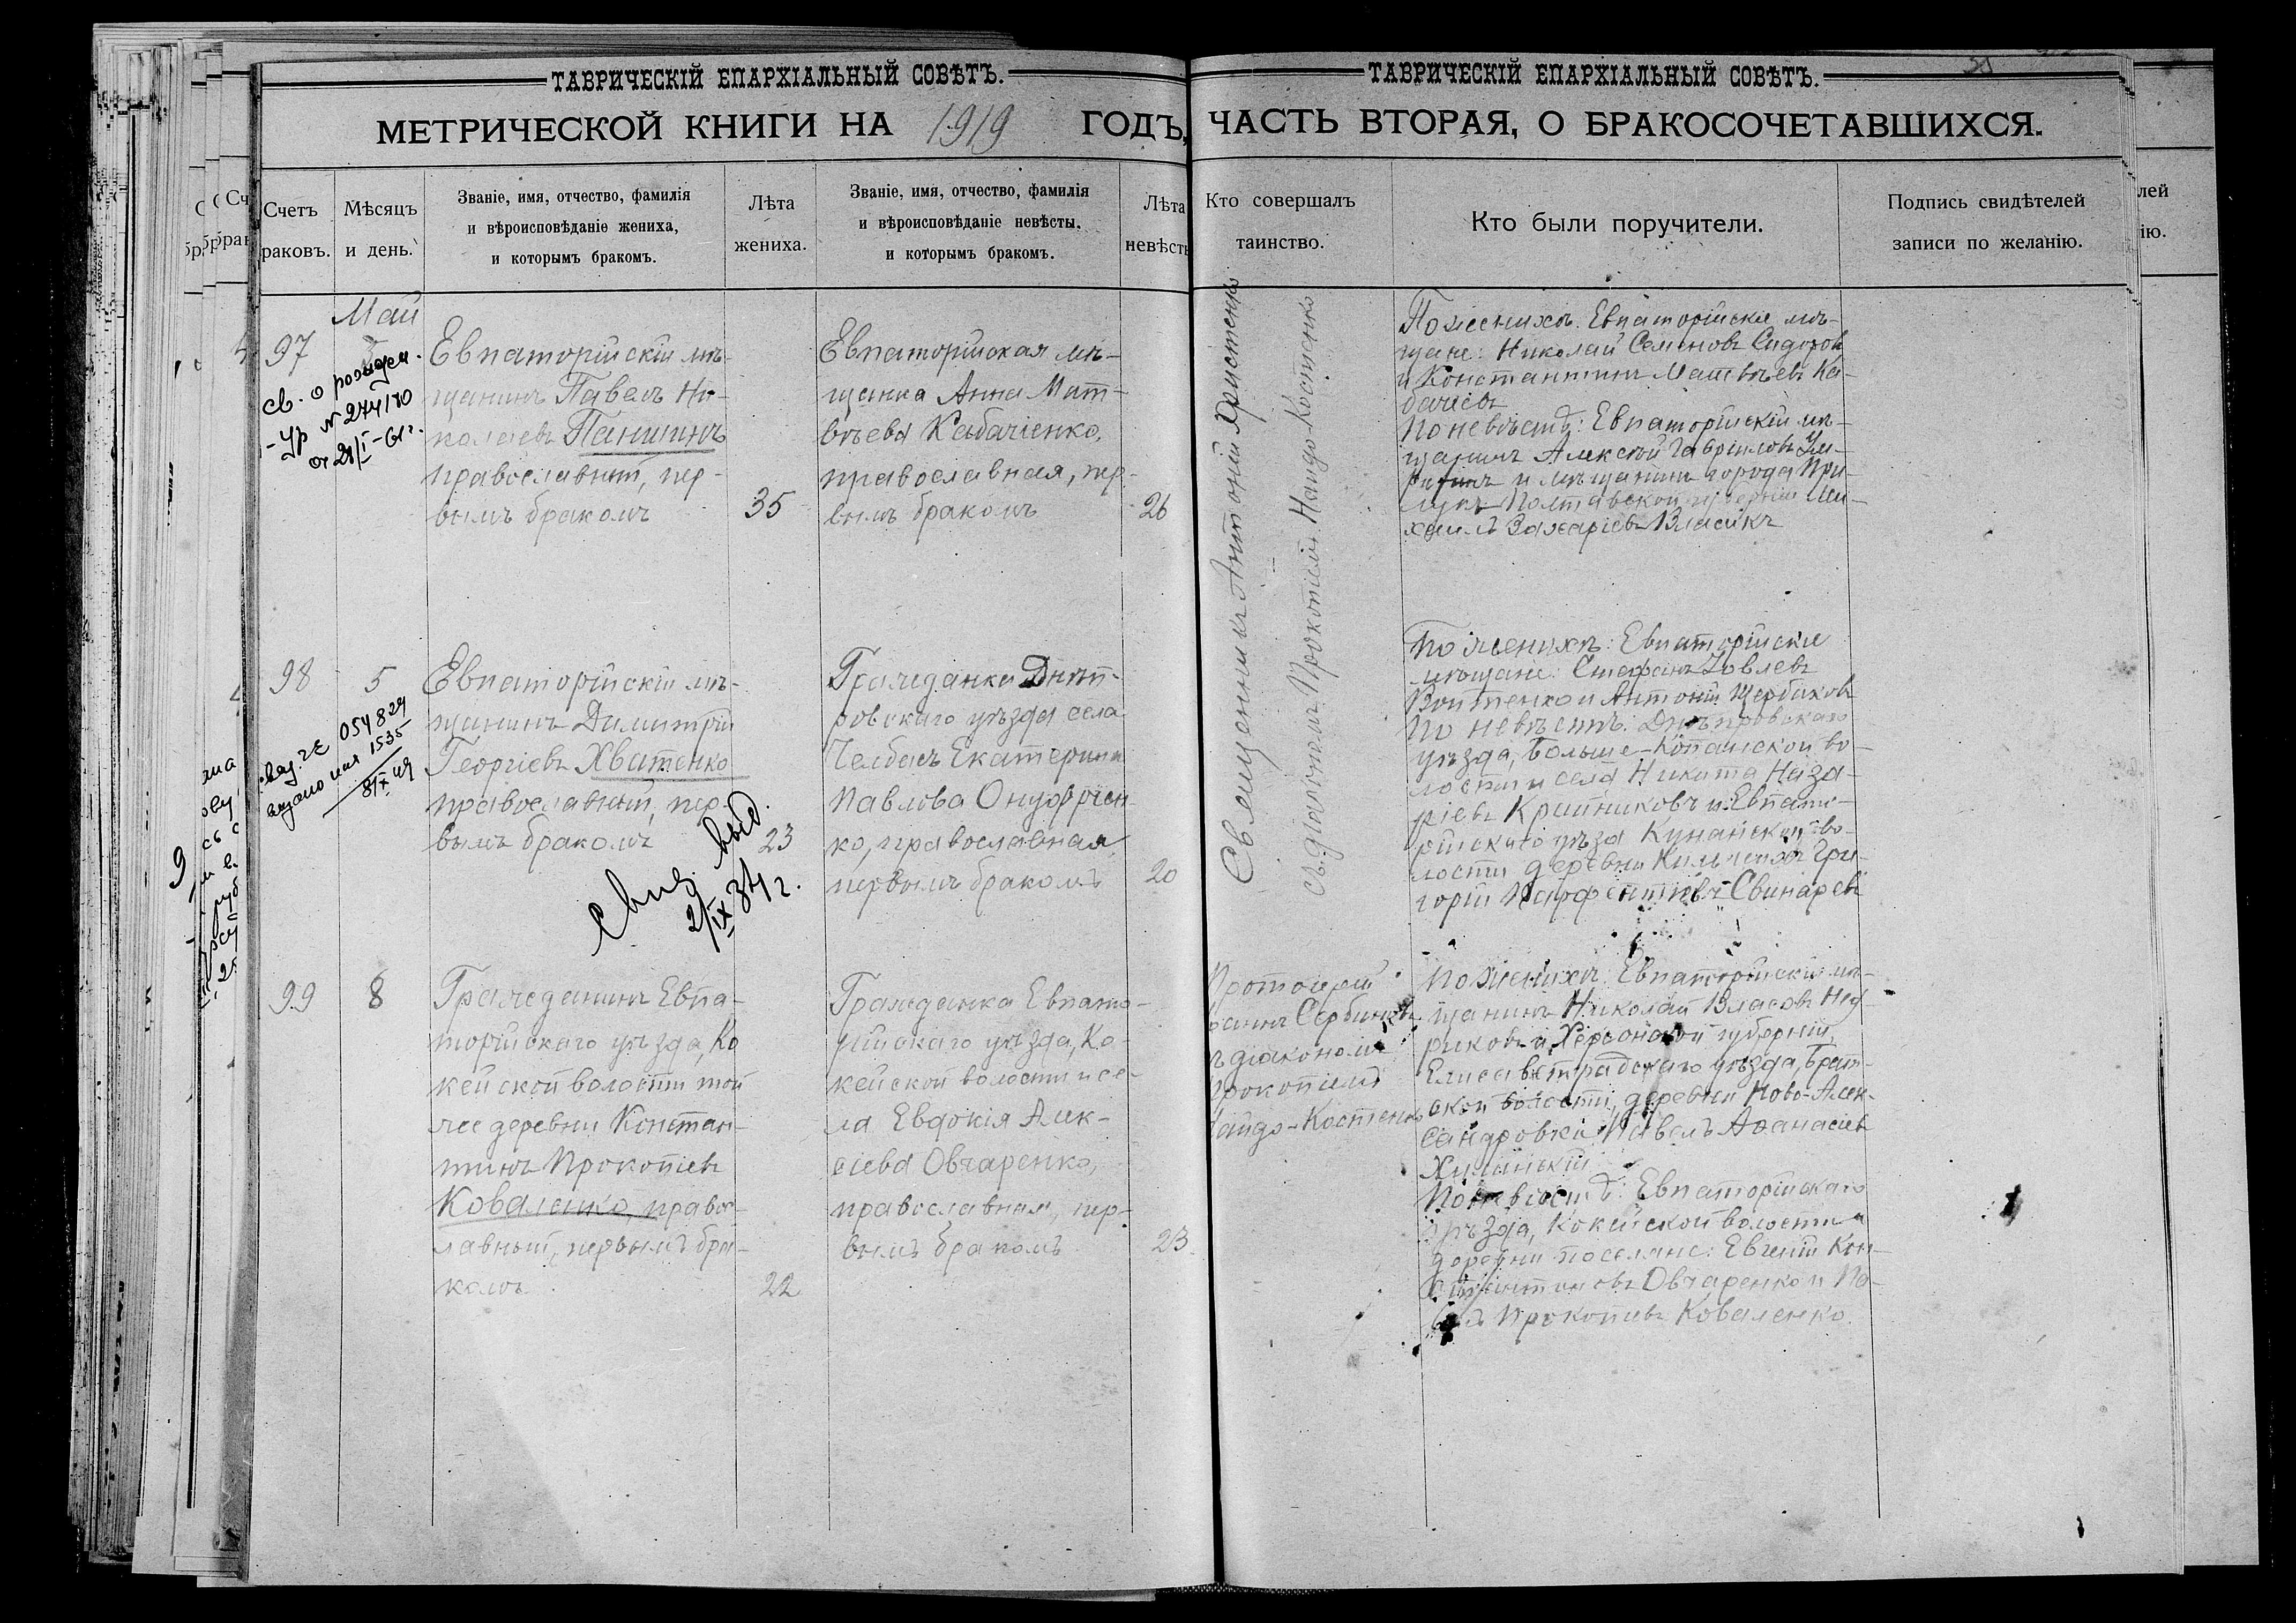 ТАВРИЧЕСКІЙ ЕПАРХІАЛЬНЫЙ СОВѢТЪ.
МЕТРИЧЕСКОЙ КНИГИ НА 1919 ГОДЪ,
Счетъ
раковъ.
Мѣсяцъ
и день.
Званіе, имя, отчество, фамилія
и вѣроисповѣданіе жениха,
и которымъ бракомъ.
Лѣта
жениха.
Званіе, имя, отчество, фамилія
и вѣроисповѣданіе невѣсты,
и которымъ бракомъ.
Лѣта
невѣсты
ТАВРИЧЕСКІЙ ЕПАРХІАЛЬНЫЙ СОВѢТЪ.
ЧАСТЬ ВТОРАЯ, О БРАКОСОЧЕТАВШИХСЯ.
Кто совершалъ
таинство.
Кто были поручители.
Подпись свидѣтелей
записи по желанію.
Май
97
св. о рожден.
от 21/I-61г.
Евпаторійскій мѣ-
щанинъ Павелъ Ни-
колаевъ Паншинъ
православный, пер-
вымъ бракомъ
35
Евпаторійская мѣ-
щанка Анна Мат-
вѣева Кабаченко,
православная, пер-
вымъ бракомъ
26
Священникъ Антоній Христенко
съ діакономъ Прокопіемъ Найдо-Костенко
По женихѣ: Евпаторійскіе мѣ-
щане: Николай Семеновъ Сидоровъ
и Константинъ Матвѣевъ Ка-
По невѣстѣ: Евпаторійскій мѣ-
щанинъ Алексѣй Гавриловъ
и мѣщанинъ города При-
лукъ Полтавской губерніи Ми-
хаилъ Захаріевъ Власикъ
98
5
054829
1535
8/IX 49
Евпаторійскій мѣ-
щанинъ Димитрій
Георгіевъ Хватенко
православный, пер-
вымъ бракомъ
23
Свид. выд.
2/IX 34 г.
Гражданка Днѣп-
ровскаго уѣзда села
Челбасъ Екатерина
Павлова Онуфріен-
ко, православная
первымъ бракомъ
20
По женихѣ: Евпаторійскіе
мѣщане: Стефанъ
Войтенко и Антоній Щербаковъ
По невѣстѣ: Днѣпровскаго
уѣзда, Больше-Копанской во-
лости и села Никита Наза-
ріевъ Крайниковъ и Евпато-
рійскаго уѣзда Кунанской во-
лости деревни Гри-
горій Парфентіевъ Свинаревъ
99
8
Гражданинъ Евпа-
торійскаго уѣзда, Ко
кейской волости той
же деревни Констан-
тинъ Прокопіевъ
Коваленко, правос-
лавный, первымъ бра-
комъ
22
Гражданка Евпато-
рійскаго уѣзда, Ко-
кейской волости и се-
ла Евдокія Алек-
сіева Овчаренко,
православная, пер-
вымъ бракомъ
23
Протоіерей
Сербиновъ
ъ діакономъ
Прокопіемъ
Найдо-Костенко
По женихѣ: Евпаторійскій мѣ-
щанинъ Николай Власовъ
и Херсонской губерніи,
Елисаветградскаго уѣзда, Брат-
ской волости, деревни Ново-Алек-
сандровки Павелъ Афанасіевъ
По невѣстѣ: Евпаторійскаго
уѣзда, Кокейской волости и
деревни поселяне: Евгеній Кон-
стантиновъ Овчаренко и Па-
велъ Прокопіевъ Коваленко.